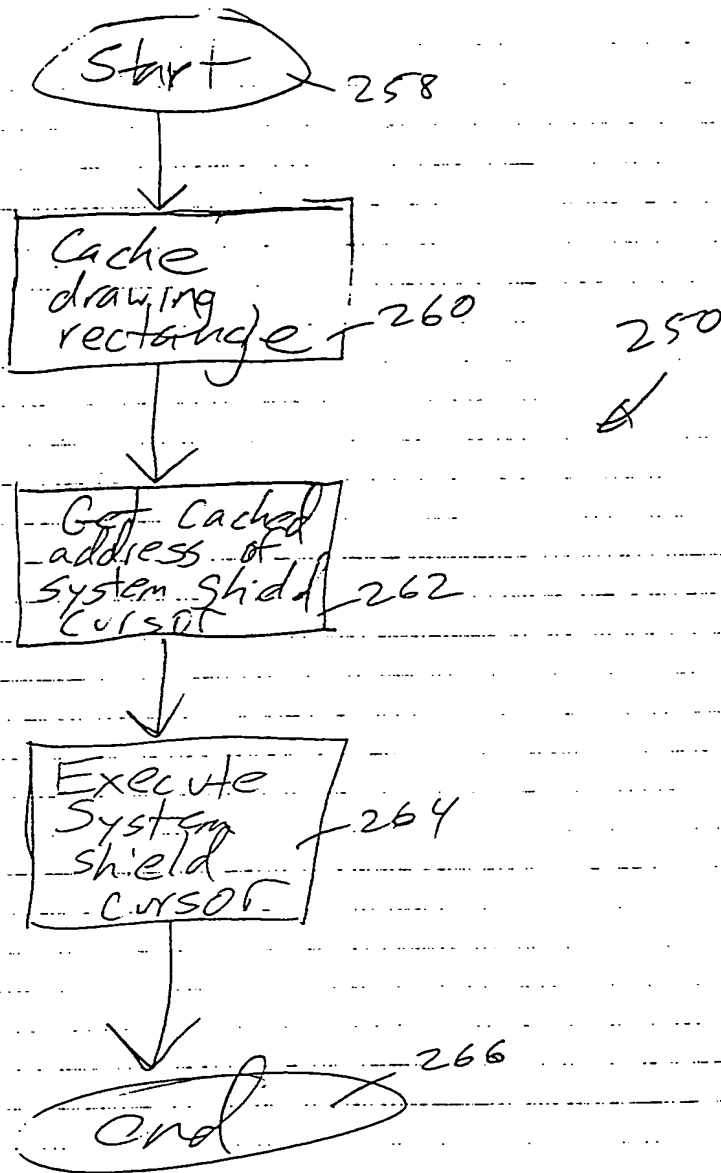 Start
258
Cache
drawing
rectangle
260
250
Get Cached
address of
system shield
cursor
262
Execute
System
shield
cursor
264
end
266